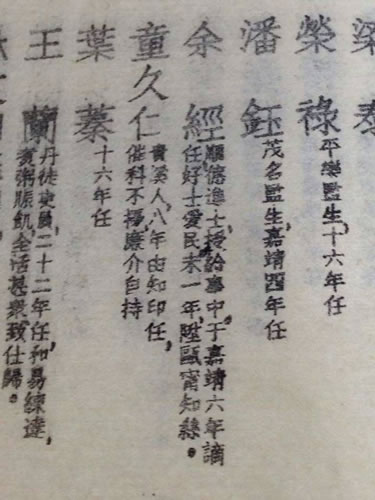 梁泰
榮祿 平樂監生,十六年任
潘鈺 茂名監生,嘉靖四年任
余經 順德進士,授給事中,于嘉靖六年謫
任好士愛民,未一年,陞甌甯知縣。
童久仁 貴溪人,八年由知印任,
催科不擾,廉介自持
葉蓁 十六年任
王蘭 丹徒吏員,二十二年任,和易練達,
煮粥賑飢,全活甚衆,致仕歸。